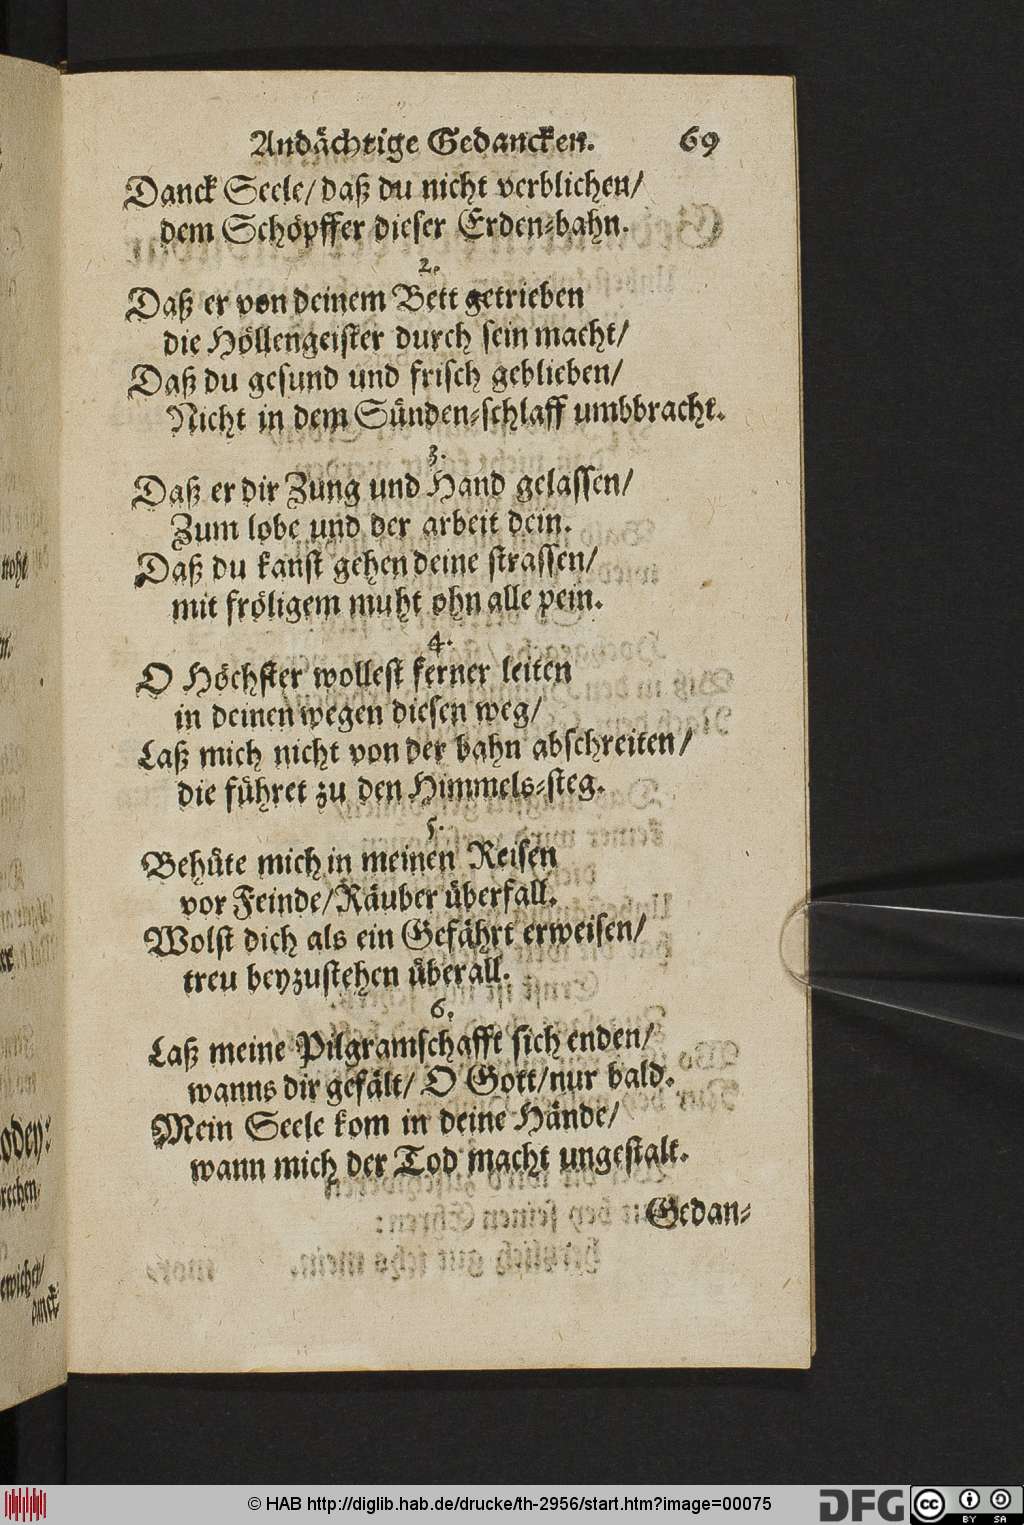 Andächtige Gedancken. 69
Danck Seele/ daß du nicht verblichen/
dem Schöpffer dieser Erden-bahn.
2.
Daß er von deinem Bett getrieben
die Höllengeister durch sein macht/
Daß du gesund und frisch geblieben/
Nicht in dem Sünden-schlaff umbbracht.
3.
Daß er dir Zung und Hand gelassen/
Zum lobe und der arbeit dein.
Daß du kanst gehen deine strassen/
mit fröligem muht ohn alle pein.
4.
O Höchster wollest ferner leiten
in deinen wegen diesen weg/
Laß mich nicht von der bahn abschreiten/
die führet zu den Himmels-steg.
5.
Behüte mich in meinen Reisen
vor Feinde/ Räuber überfall.
Wolst dich als ein Gefährt erweisen/
treu beyzustehen überall.
6.
Laß meine Pilgramschafft sich enden/
wanns dir gefält/ O Gott/ nur bald.
Mein Seele kom in deine Hände/
wann mich der Tod macht ungestalt.
Gedan-
© HAB http://diglib.hab.de/drucke/th-2956/start.htm?image=00075
DFG
cc
BY SA